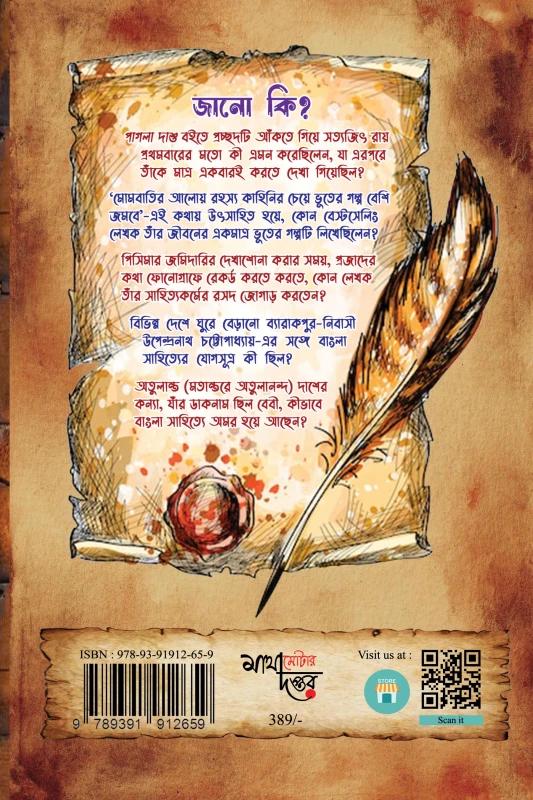 জানো কি?
পাগলা দাশু বইতে প্রচ্ছদটি আঁকতে গিয়ে সত্যজিৎ রায়
প্রথমবারের মতো কী এমন করেছিলেন, যা এরপরে
তাঁকে মাত্র একবারই করতে দেখা গিয়েছিল?
‘মোমবাতির আলোয় রহস্য কাহিনির চেয়ে ভূতের গল্প বেশি
জমবে’-এই কথায় উৎসাহিত হয়ে, কোন বেস্টসেলিং
লেখক তাঁর জীবনের একমাত্র ভূতের গল্পটি লিখেছিলেন?
পিসিমার জমিদারির দেখাশোনা করার সময়, প্রজাদের
কথা ফোনোগ্রাফে রেকর্ড করতে করতে, কোন লেখক
তাঁর সাহিত্যকর্মের রসদ জোগাড় করতেন?
বিভিন্ন দেশে ঘুরে বেড়ানো ব্যারাকপুর-নিবাসী
উপেন্দ্রনাথ চট্টোপাধ্যায়-এর সঙ্গে বাংলা
সাহিত্যের যোগসূত্র কী ছিল?
অতুলান্ত (মতান্তরে অতুলানন্দ) দাশের
কন্যা, যাঁর ডাকনাম ছিল বেবী, কীভাবে
বাংলা সাহিত্যে অমর হয়ে আছেন?
ISBN : 978-93-91912-65-9
9 789391 912659
মাথামোটার
দপ্তর
389/-
Visit us at :
STORE
Scan it